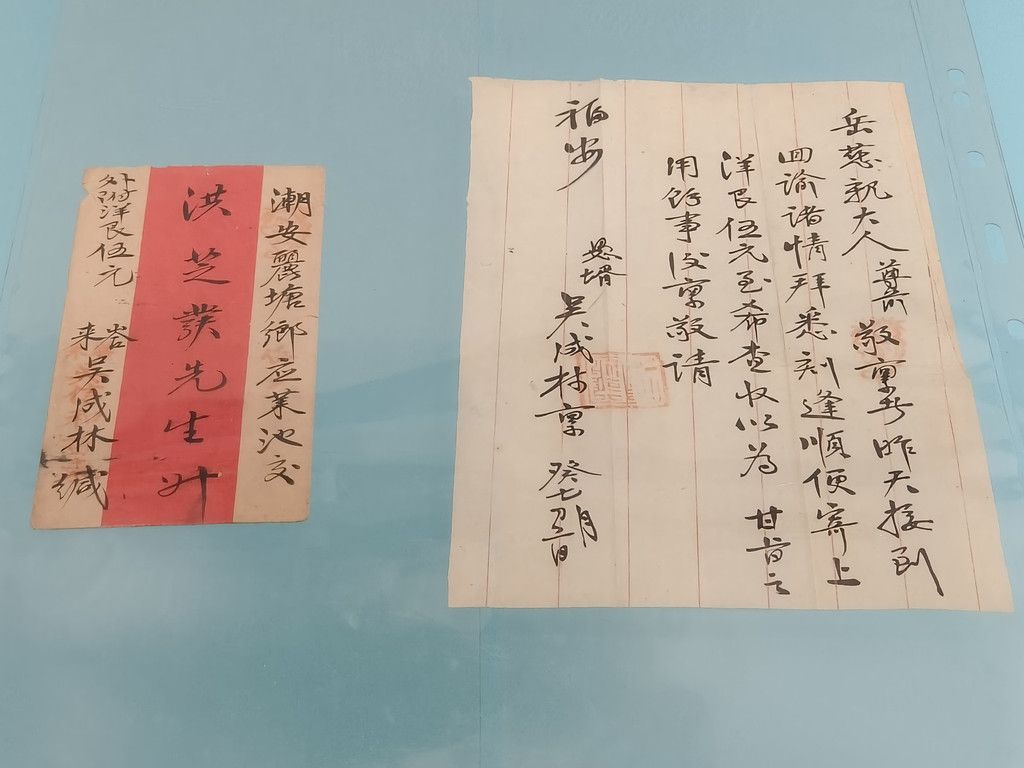 潮安麗塘鄉应菜池交
洪芝謨先生升
外附洋艮伍元
來 吳成林緘
岳慈親大人尊前敬禀者昨天接到
回諭諸情拜悉刻逢順便寄上
洋艮伍元至希查收以為 甘旨之
用餘事後禀敬請
福安
愚壻 吳成林禀 癸七月日